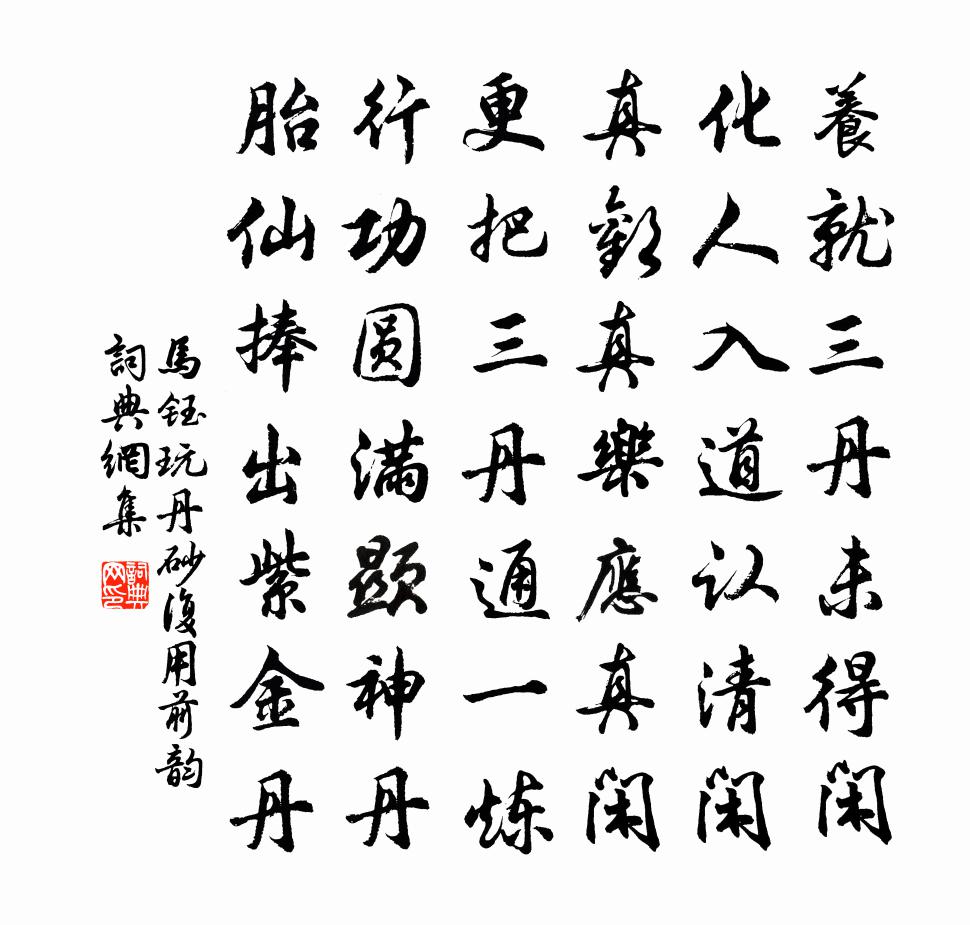 養就三丹未得闲
化人入道认清闲
真歡真樂應真闲
更把三丹通一炼
行功圆满显神丹
胎仙捧出紫金丹
馬钰玩丹砂復用前韵
詞典網集
詞典网印